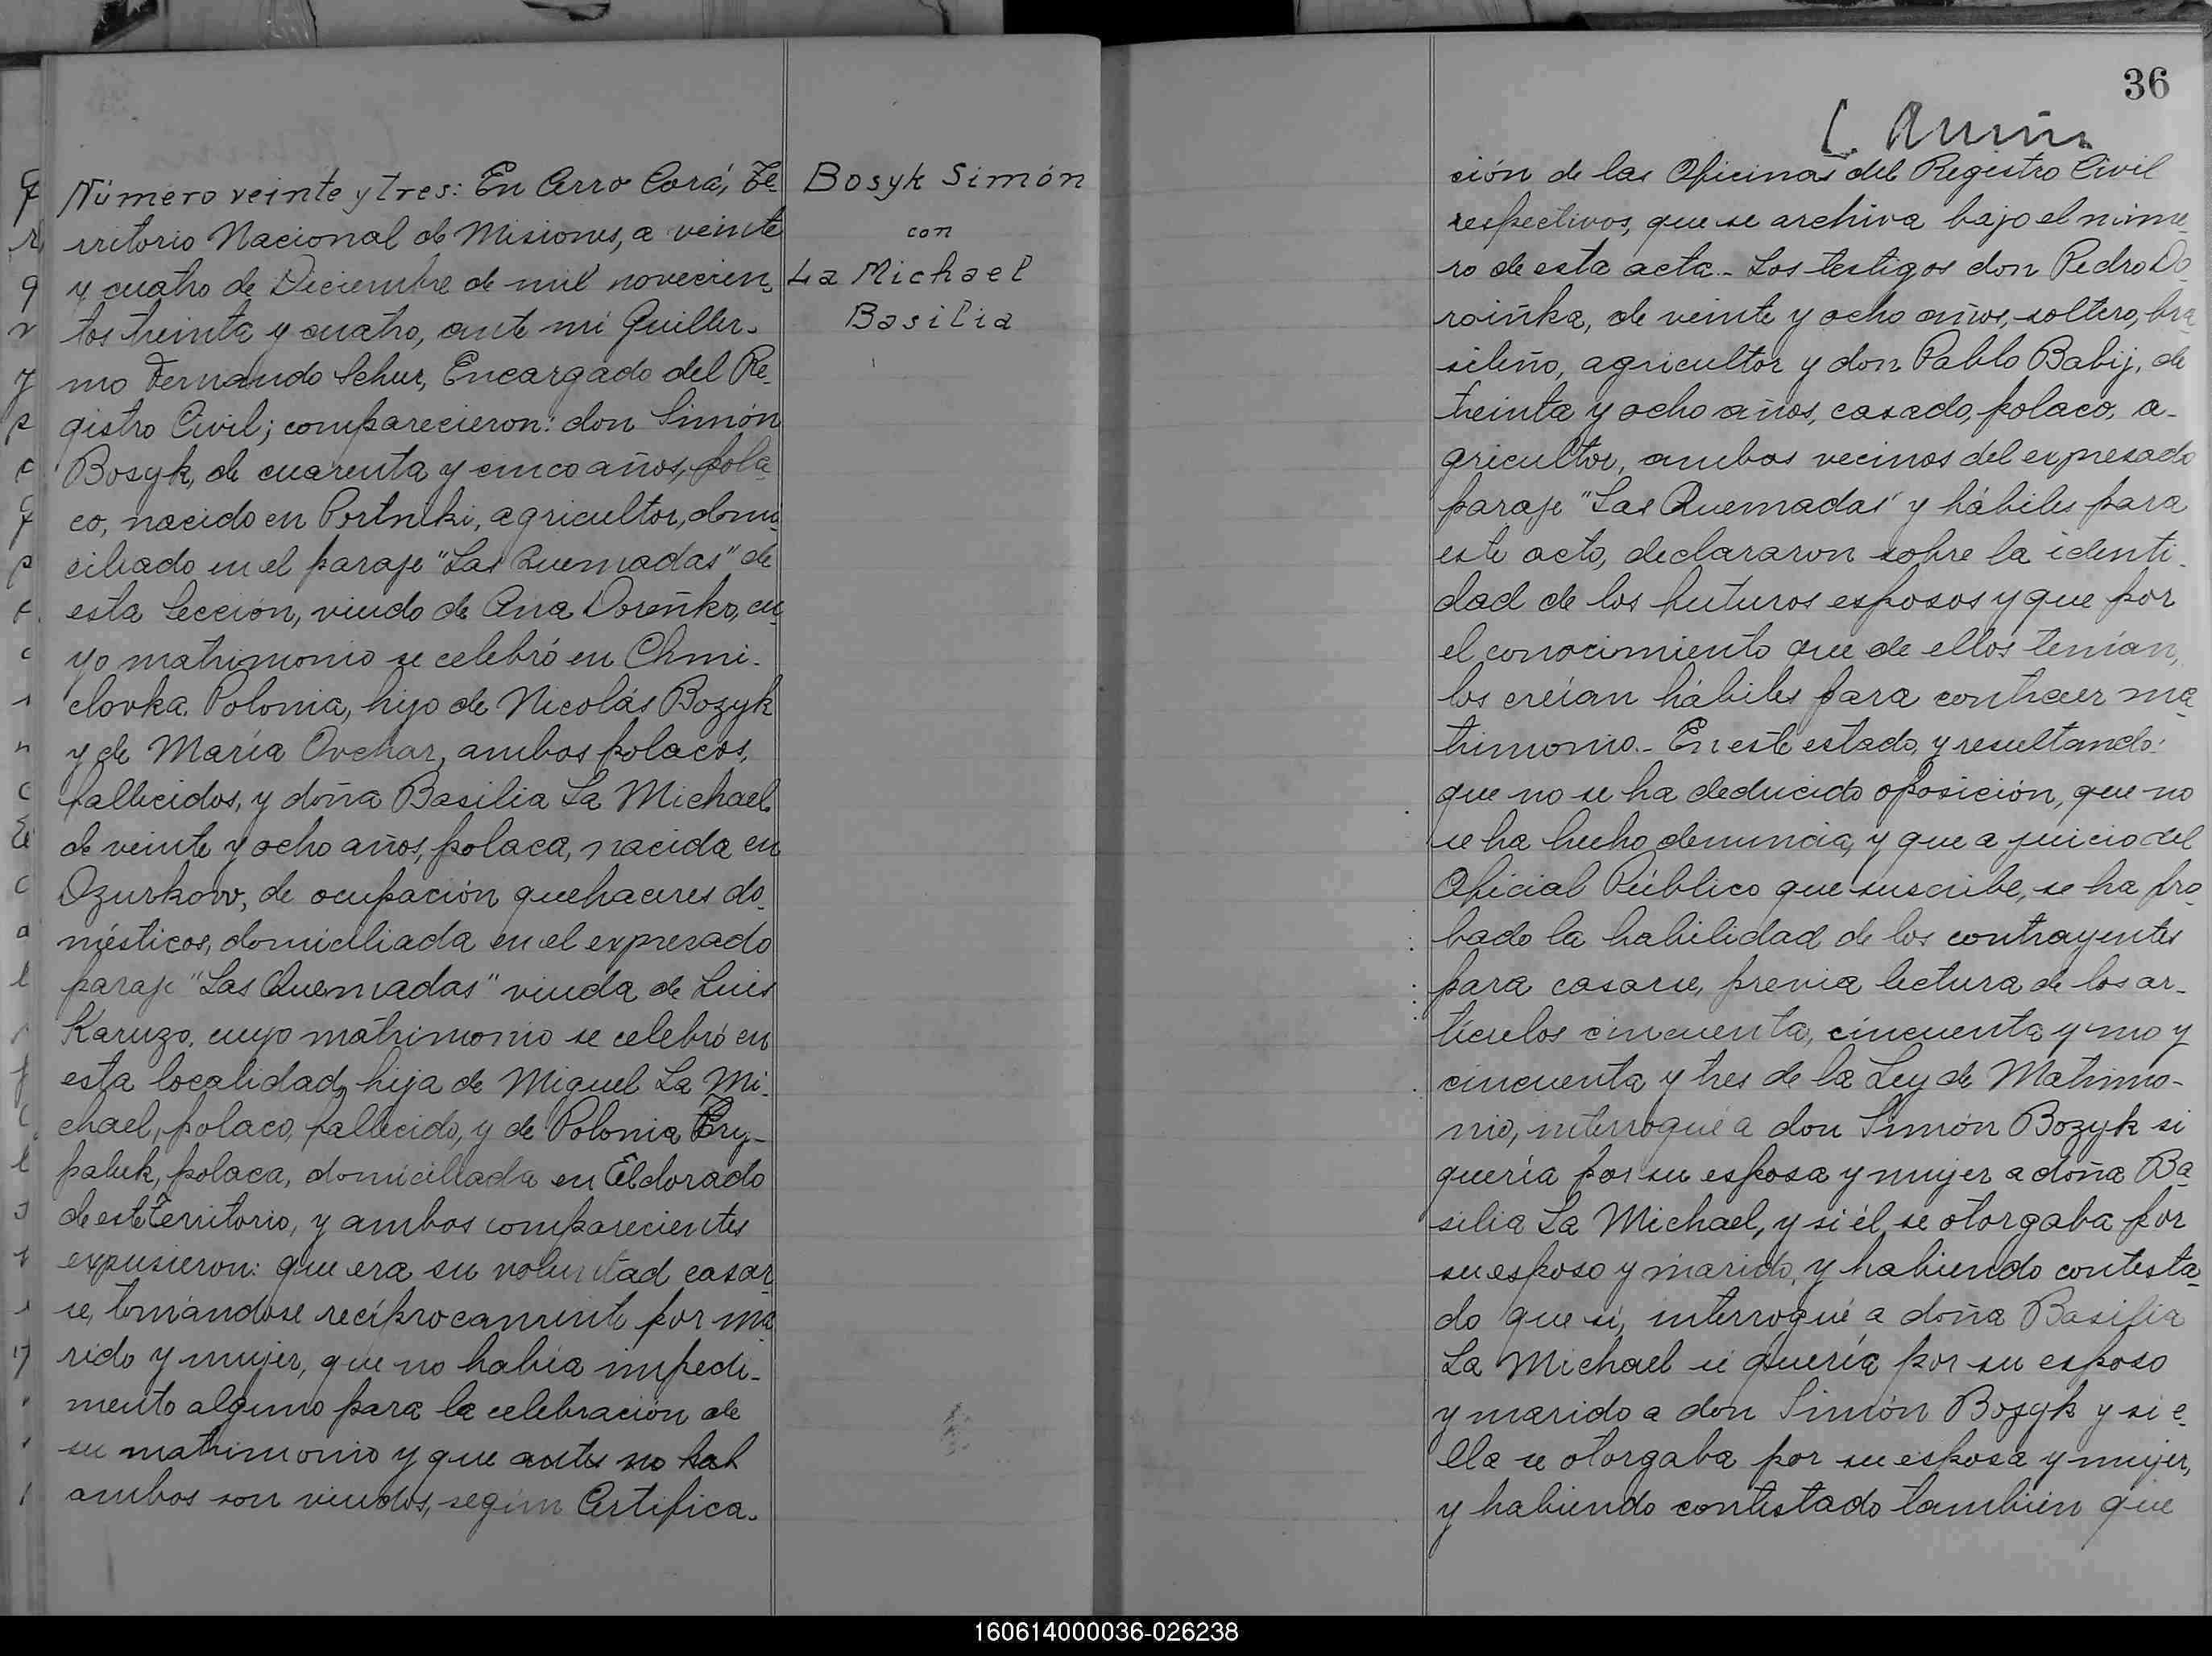 Número veinte y tres: En Cerro Corá, Te-
rritorio Nacional de Misiones, a veinte
y cuatro de Diciembre de mil novecien-
tos treinta y cuatro, ante mi Guiller-
mo Fernando Schur, Encargado del Re-
gistro Civil; comparecieron: don Simón
Bosyk, de cuarenta y cinco años, pola-
co, nacido en Portniki, agricultor, domi-
ciliado en el paraje "Las Quemadas" de
esta Sección, viudo de Ana Doreñko, cu-
yo matrimonio se celebró en Chmi-
elovka. Polonia, hijo de Nicolás Bozyk
y de María Ovchar, ambos polacos,
fallecidos, y doña Basilia La Michael
de veinte y ocho años, polaca, nacida en
Dzurkow, de ocupación quehaceres do-
mésticos, domiciliada en el expresado
paraje "Las Quemadas" viuda de Luis
Karuzo, cuyo matrimonio se celebró en
esta localidad, hija de Miguel La Mi-
chael, polaco, fallecido, y de Polonia
paluk, polaca, domiciliada en Eldorado
de este Territorio, y ambos comparecientes
expusieron: que era su voluntad casar-
se, tomándose recíprocamente por ma-
rido y mujer, que no había impedi-
mento alguno para la celebración de
su matrimonio y que antes no hab
ambos son viudos, según Certifica-
Bosyk Simón
con
La Michael
Basilia
36
ción de las Oficinas del Registro Civil
respectivos, que se archiva bajo el núme-
ro de esta acta.- Los testigos don Pedro Do-
roiñka, de veinte y ocho años, soltero, bra
sileño, agricultor y don Pablo Babij, de
treinta y ocho años, casado, polaco, a-
gricultor, ambos vecinos del expresado
paraje "Las Quemadas" y hábiles para
este acto, declararon sobre la identi-
dad de los futuros esposos y que por
el conocimiento que de ellos tenían,
los creían hábiles para contraer ma-
trimonio.- En este estado, y resultando:
que no se ha deducido oposición, que no
se ha hecho denuncia, y que a juicio del
Oficial Público que suscribe, se ha pro-
bado la habilidad de los contrayentes
para casarse, previa lectura de los ar-
tículos cincuenta, cincuenta y uno y
cincuenta y tres de la Ley de Matrimo-
nio, interrogué a don Simón Bozyk si
quería por su esposa y mujer a doña Ba-
silia La Michael, y si él se otorgaba por
su esposo y marido, y habiendo contesta-
do que sí, interrogué a doña Basilia
La Michael si quería por su esposo
y marido a don Simón Bozyk y si e-
lla se otorgaba por su esposa y mujer,
y habiendo contestado también que
160614000036-026238